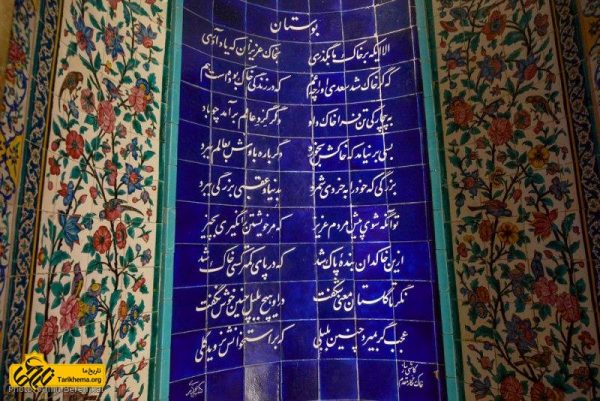 بوستان
الا ایکه بر خاک ما بگذری بخاک عزیزان که یاد آوری
که گر خاک شد سعدی او را چه غم که در زندگی خاک بوده است هم
به بیچارگی تن فرا خاک داد دگر گرد عالم برآمد چو باد
بسی برنیامد که خاکش بخورد دگر باره بادش بعالم ببرد
بزرگی که خود را به خردی شمرد بدنیا و عقبی بزرگی ببرد
تو آنگه شوی پیش مردم عزیز که مر خویشتن را نگیری بچیز
ازین خاکدان بنده پاک شد که در پای کمتر کسی خاک شد
نگر تا گلستان معنی شکفت در او هیچ بلبل چنین خوش نگفت
عجب گر بمیرد چنین بلبلی که بر استخوانش نروید گلی
کاشی ساز
خاک نگار مقدم
تاریخ ما
Tarikhema.org